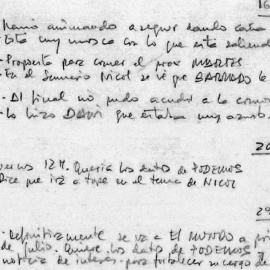 16
llamó animando a seguir dando caña
- Está muy mosca con lo que está saliendo
- Propuesta para comer el prox MARTES
- En el Sumario Nicol se ve que BARRADO
- Al final no pudo acudir a la comi
- Lo hizo DAVI que estaba muy asust
20
12 H. Quería los datos de TODEMOS
Dice que irá a tope en el tema de NICOL
29
- Definitivamente se va a El MUNDO a pri
de julio. Quiere los datos de TODEMOS
noticia de interés para fortalecer su cargo de